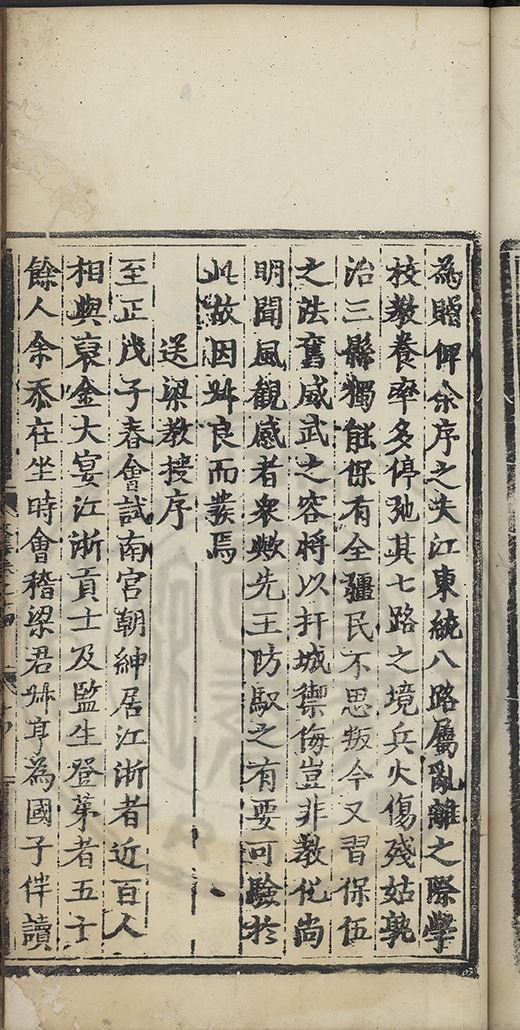 為贈俾余序之夫江東統八路屬亂離之際學
校教養率多停弛其七路之境兵火傷殘姑孰
治三縣獨能保有全疆民不思叛今又習保伍
之法奮威武之容將以扞城禦侮豈非教化尚
明聞風觀感者衆歟先王防馭之有要可驗於
此故因<unk>良而叢焉
送梁教授序
至正戊子春會試南宮朝紳居江浙者近百人
相與裒金大宴江浙貢士及監生登苐者五十
餘人余忝在坐時會稽梁君<unk>亨為國子伴讀